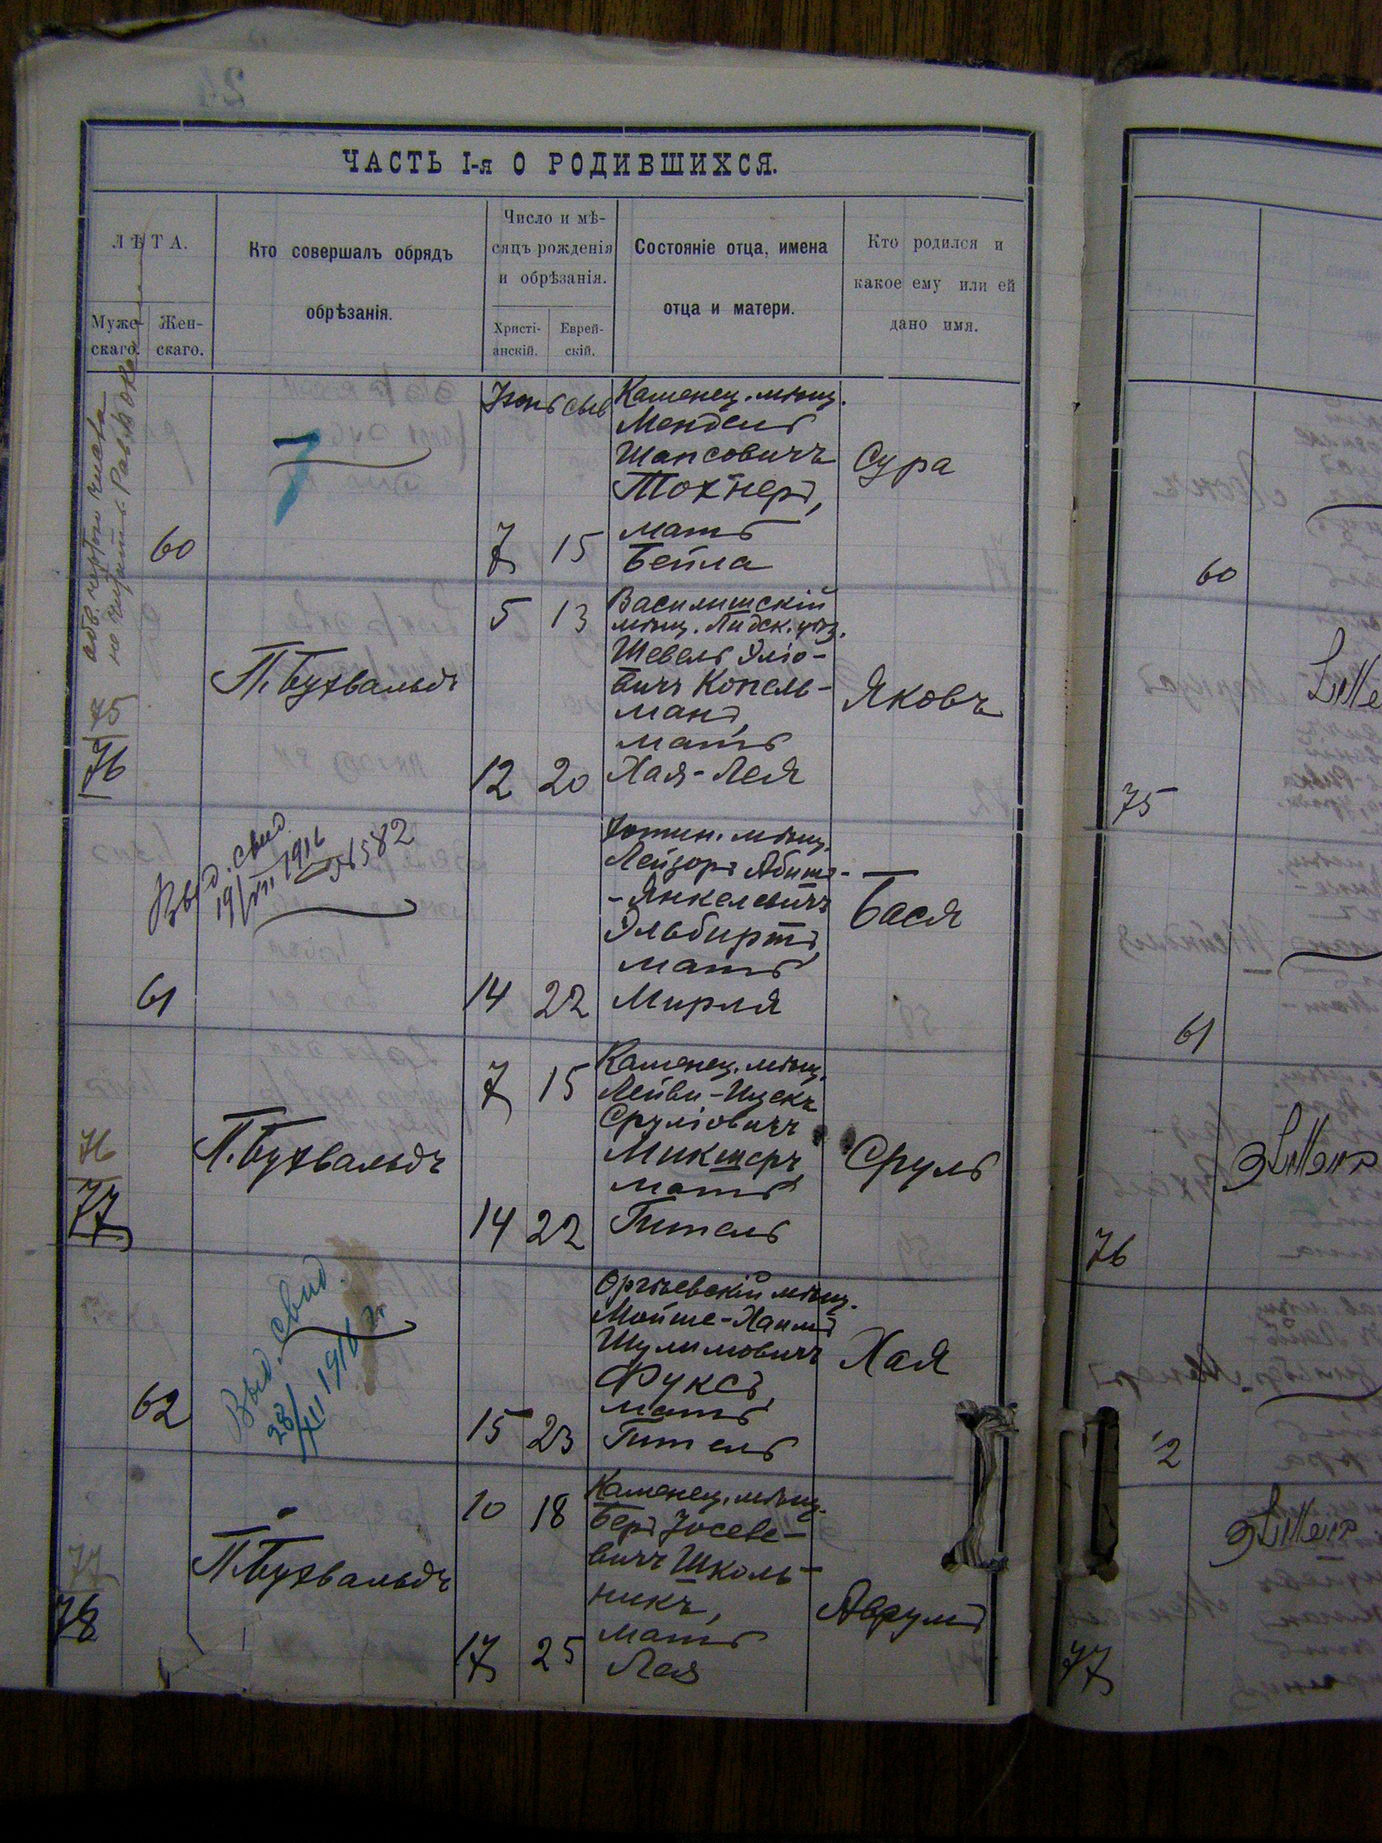 24
ЧАСТЬ I-я О РОДИВШИХСЯ.
ЛѢТА.
Мужескаго.
Женскаго.
Кто совершалъ обрядъ
обрѣзанія.
Число и мѣ-
сяцъ рожденія
и обрѣзанія.
Христі-
анскій.
Еврей-
скій.
Состояніе отца, имена
отца и матери.
Кто родился и
какое ему или ей
дано имя.
60
7
Іюнь
7 15
Каменец. мѣщ.
Мендель
Шапсовичъ
Тохнеръ,
мать
Бейла
Сура
75
76
П. Бухвальдъ
5 13
12 20
Василишскій
мѣщ. Лидск. уѣз.
Шевель Эліо-
вичъ Копель-
манъ,
мать
Хая-Лея
Яковъ
61
Выд. свид.
19/VII 1916
№ 582
14 22
Хотин. мѣщ.
Лейзоръ Абишъ-
-Янкелевичъ
Эльбиртъ,
мать
Мирля
Бася
76
77
П. Бухвальдъ
7 15
14 22
Каменец. мѣщ.
Лейви-Ицекъ
Сруліовичъ
Микшеръ,
мать
Гитель
Сруль
62
Выд. свид.
28/III 1916 г.
15 23
Оргѣевскій мѣщ.
Мойше-Хаимъ
Шулимовичъ
Фуксъ,
мать
Гитель
Хая
77
78
П. Бухвальдъ
10 18
17 25
Каменец. мѣщ.
Беръ Іосеве-
вичъ Школь-
никъ,
мать
Лея
Аврумъ
60
75
61
76
77